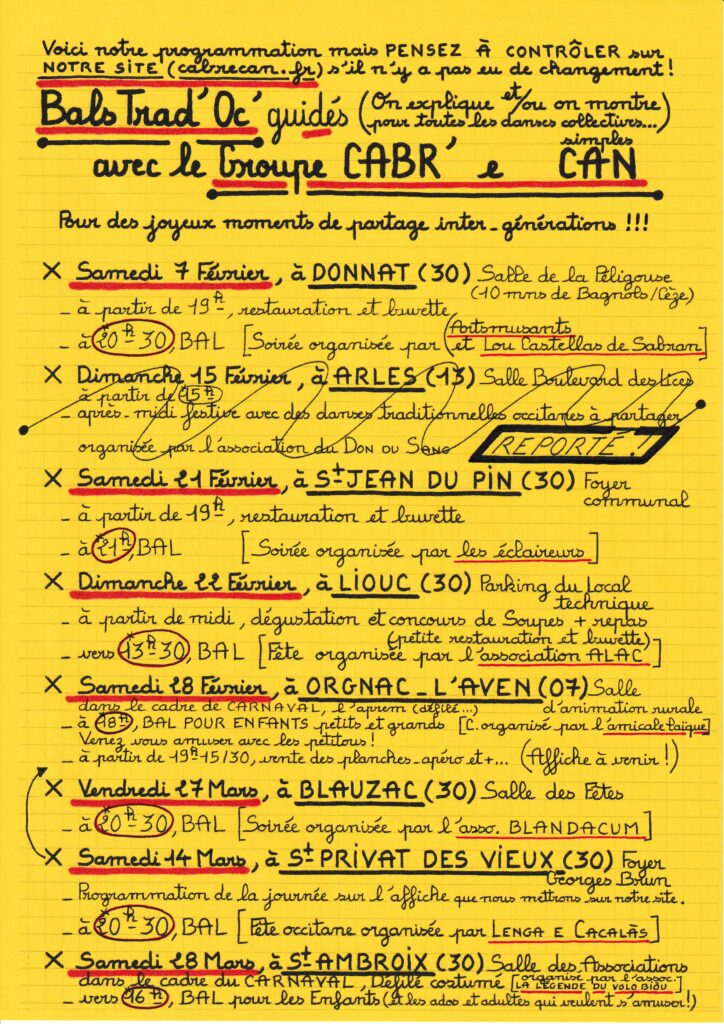 Voici notre programmation mais PENSEZ À CONTRÔLER sur
NOTRE SITE (cabrecan.fr) s'il n'y a pas eu de changement !
Bals Trad'Oc' guidés (On explique et/ou on montre
pour toutes les danses collectives... simples)
avec le Groupe CABR' e CAN
Pour des joyeux moments de partage inter-générations !!!
X Samedi 7 Février, à DONNAT (30) Salle de la Péligouse
(10 mns de Bagnols/Cèze)
- à partir de 19h, restauration et buvette
- à 20h-30, BAL [Soirée organisée par (Artsmusants
et Lou Castellas de Sabran]
X Dimanche 15 Février, à ARLES (13) Salle Boulevard des Lices
à partir de 15h
- après-midi festive avec des danses traditionnelles occitanes à partager
organisée par l'association du DON DU SANG REPORTÉ !
X Samedi 21 Février, à St JEAN DU PIN (30) Foyer
communal
- à partir de 19h, restauration et buvette
- à 21h, BAL [Soirée organisée par les éclaireurs]
X Dimanche 22 Février, à LIOUC (30) Parking du local
technique
- à partir de midi, dégustation et concours de Soupes + repas
(petite restauration et buvette)
- vers 13h-30, BAL [Fête organisée par l'association ALAC]
X Samedi 28 Février, à ORGNAC-L'AVEN (07) Salle
d'animation rurale
dans le cadre de CARNAVAL, l'aprem (défilé...)
- à 18h, BAL POUR ENFANTS petits et grands [C. organisé par l'amicale laïque]
Venez vous amuser avec les petitous !
- à partir de 19h15/30, vente des planches-apéro et+... (Affiche à venir !)
X Vendredi 27 Mars, à BLAUZAC (30) Salle des Fêtes
- à 20h-30, BAL [Soirée organisée par l'asso. BLANDACUM]
X Samedi 14 Mars, à St PRIVAT DES VIEUX (30) Foyer
Georges Brun
- Programmation de la journée sur l'affiche que nous mettrons sur notre site.
- à 20h-30, BAL [Fête occitane organisée par LENGA E CACALÀS]
X Samedi 28 Mars, à St AMBROIX (30) Salle des Associations
dans le cadre du CARNAVAL, Défilé costumé [organisé par l'assoc.
LA LÉGENDE DU VOLO BIÒU]
- vers 16h, BAL pour les Enfants (et les ados et adultes qui veulent s'amuser !)